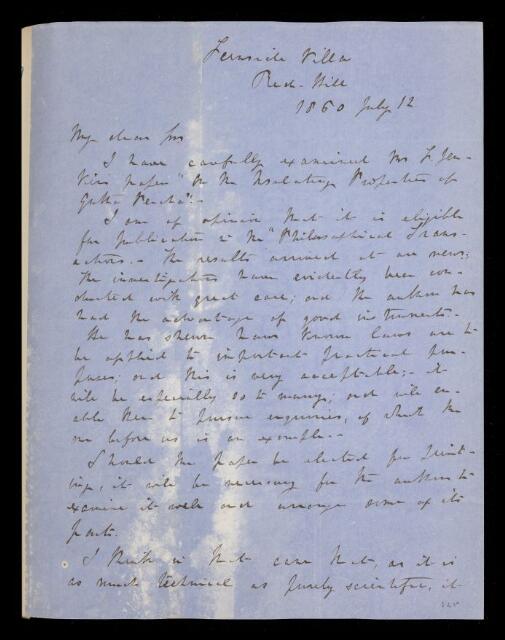 Fernside Villa
Red-Hill
1860 July 12
My dear Sir
I have carefully examined Mr F. Jen-
kin's paper "On the Insulating Properties of
Gutta Percha".-
I am of opinion that it is eligible
for publication in the "Philosophical Trans-
actions.- The results arrived at are new;
the investigations have evidently been con-
ducted with great care; and the author has
had the advantage of good instruments.-
He has shewn how known laws are to
be applied to important practical pur-
poses; and this is very acceptable;- it
will be especially so to many; and will en-
able them to pursue enquiries, of what the
one before us is an example.-
Should the paper be elected for print-
ing, it will be necessary for the author to
examine it well and arrange some of its
parts.
I think in that case that, as it is
as much technical as purely scientific, it